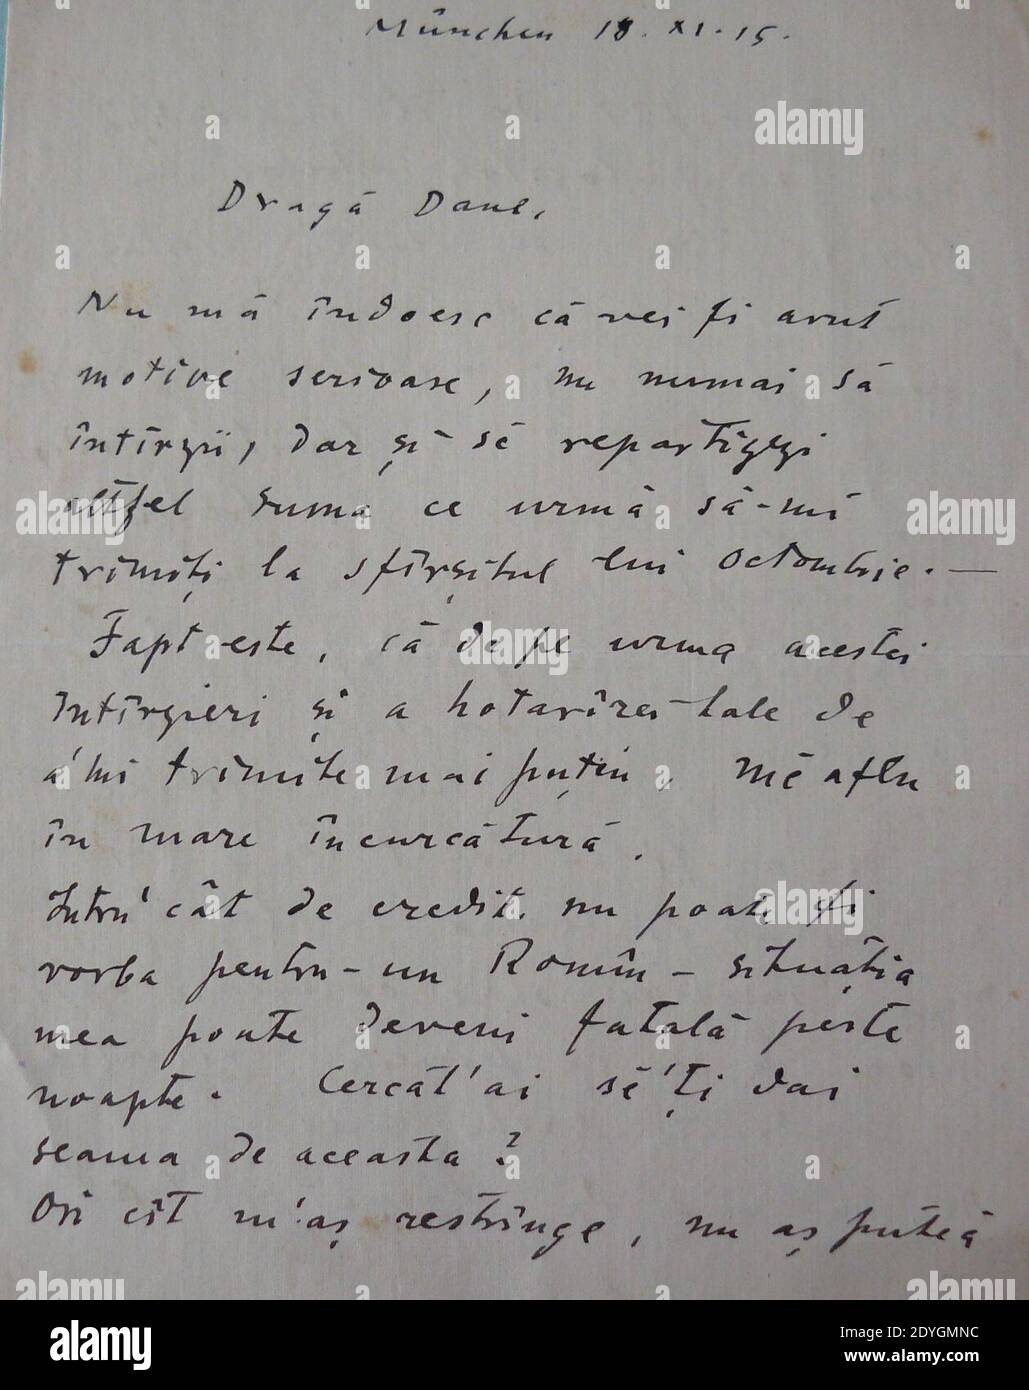 München 18. XI. 15.
Dragă Dane,
Nu mă îndoesc că vei fi avut
motive serioase, nu numai să
întîrzii, dar și să repartizezi
altfel suma ce urmă să-mi
trimiți la sfîrșitul lui Octombrie. —
Fapt este, că de pe urma acestei
întîrzieri și a hotarîrei tale de
a'mi trimite mai puțin, mă aflu
în mare încurcătură.
Intru'cât de credit nu poate fi
vorba pentru-un Romîn - situația
mea poate deveni fatală peste
noapte. Cercat'ai să'ți dai
seama de aceasta?
Ori cît m'aș restrînge, nu aș puteà
alamy
alamy
alamy
alamy
alamy
alamy
alamy
alamy
Image ID: 2DYGMNC
www.alamy.com